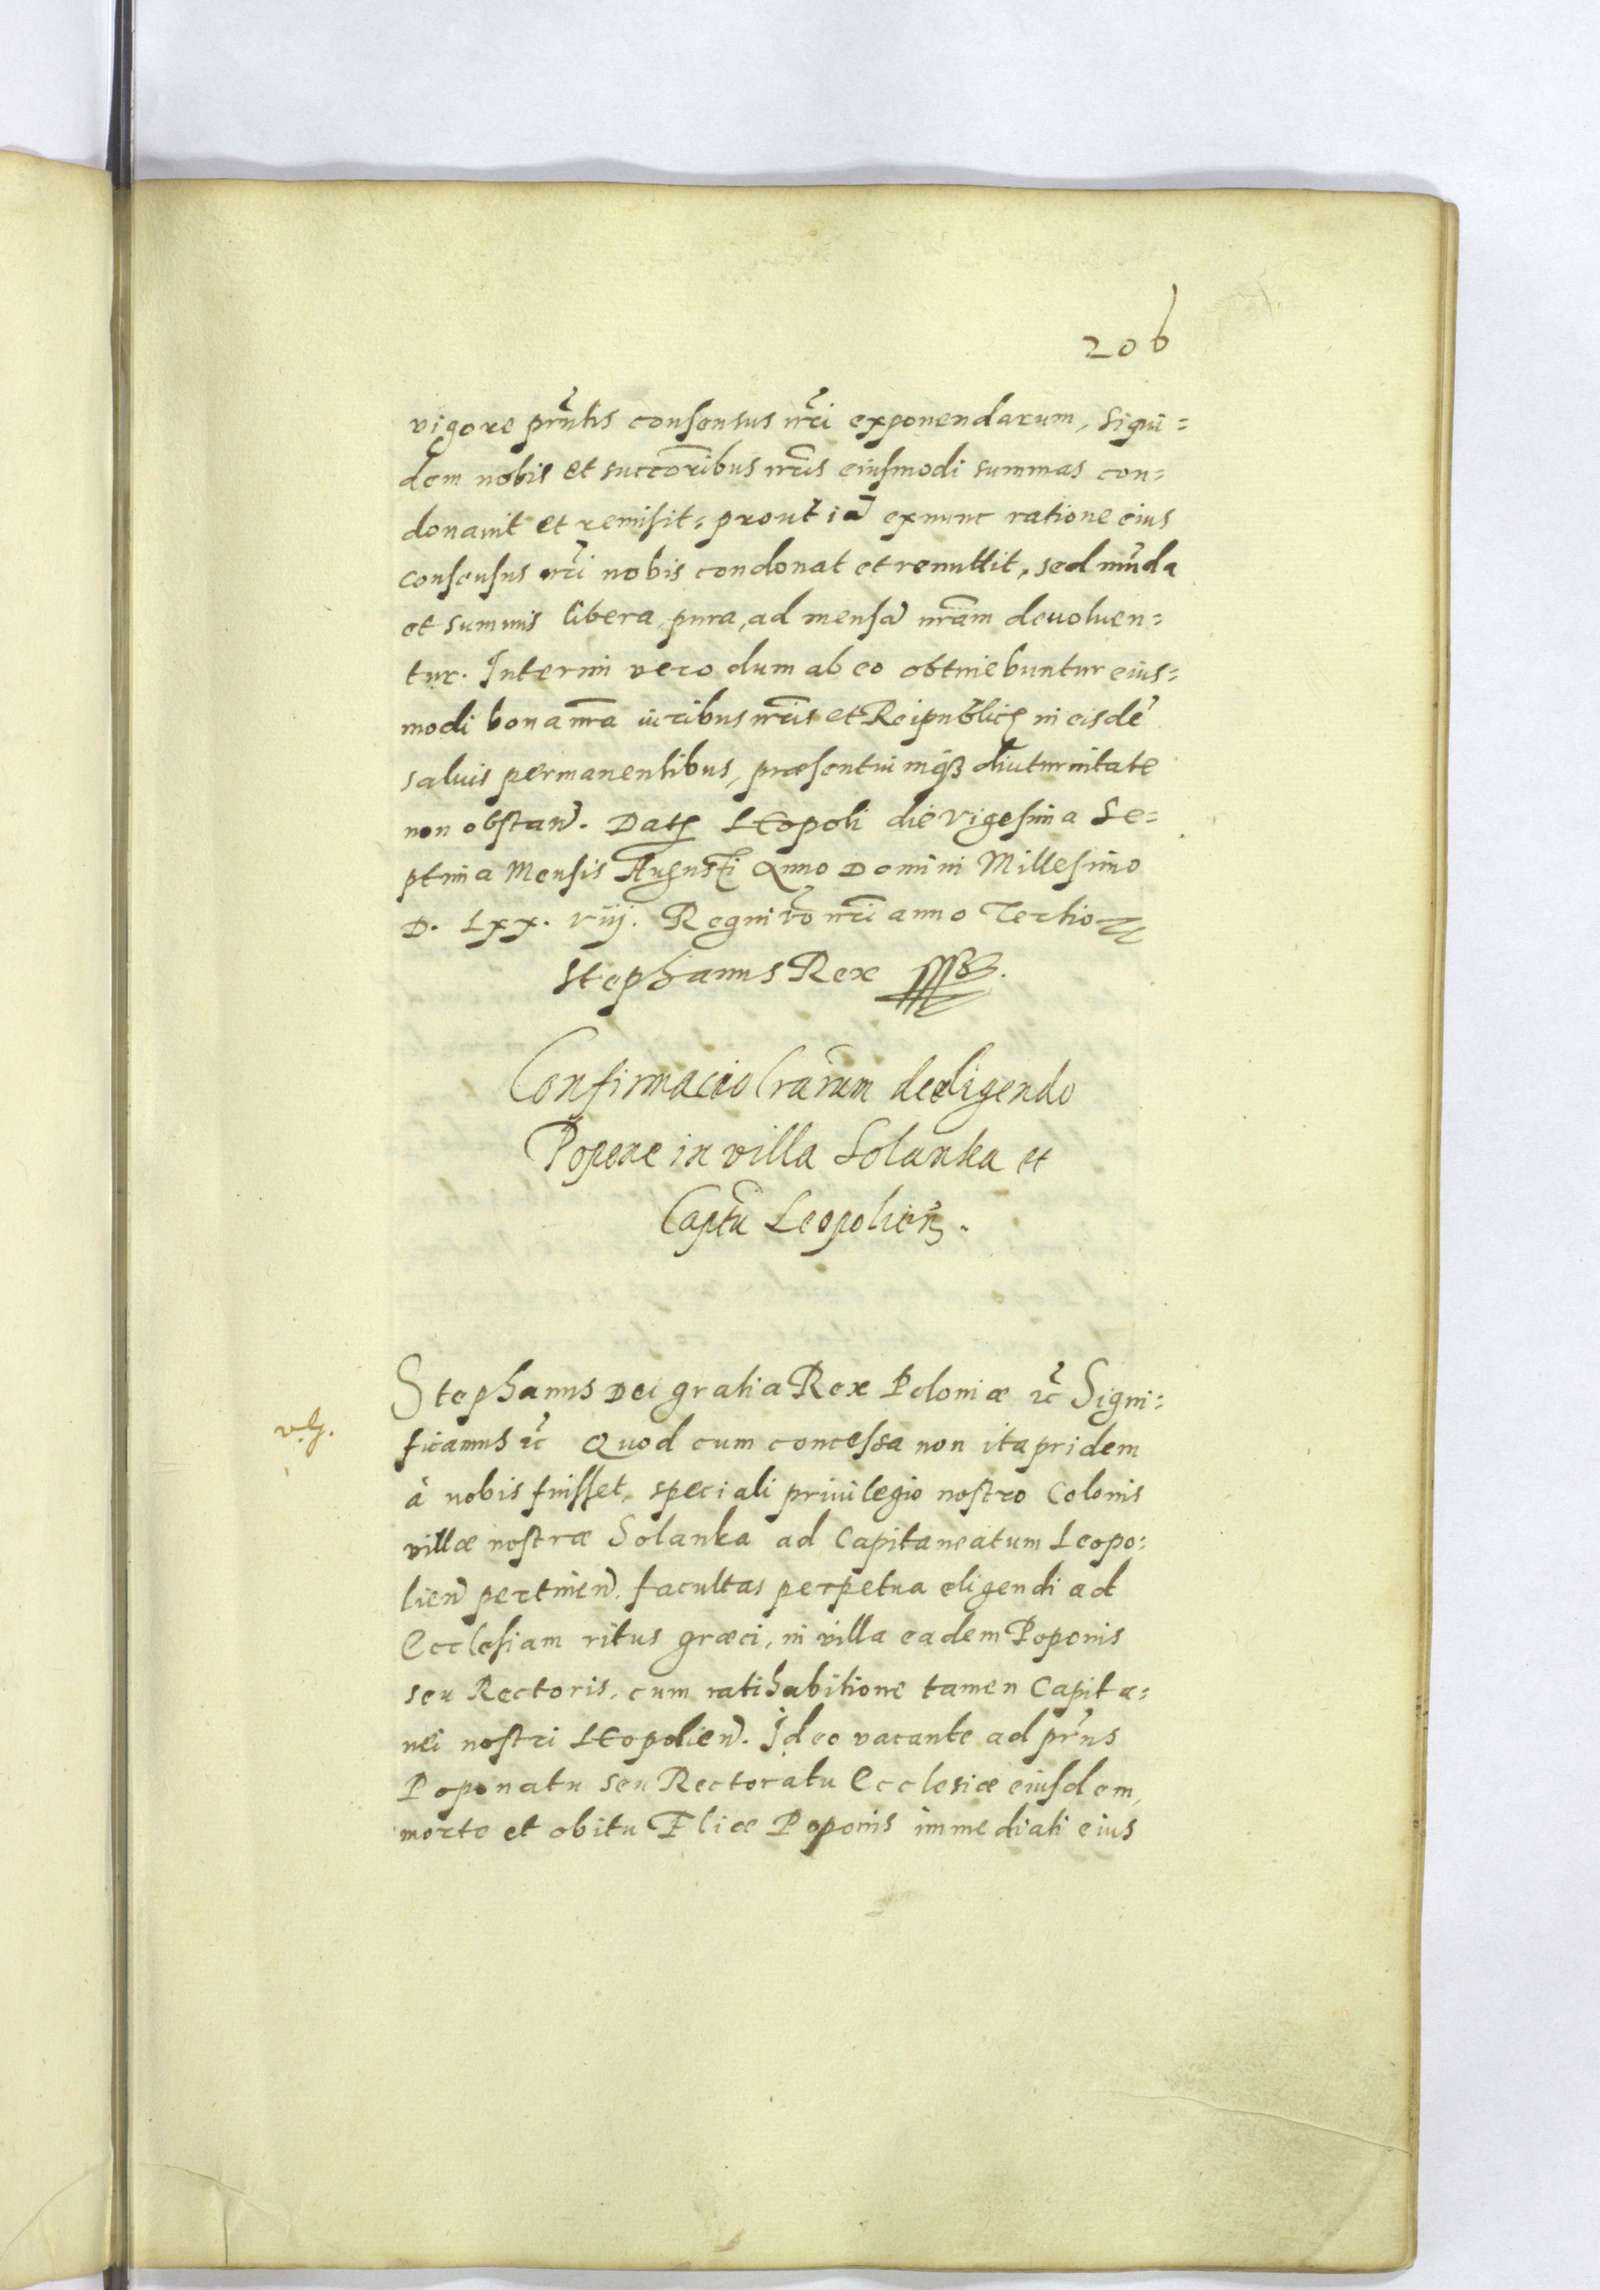 206
vigore pr̃ntis consensus nr̃i exponendarum, siqui=
dem nobis et succor̃ibus nr̃is eiusmodi summas con=
donavit et remisit: prout iã exnunc ratione eius
consensus nr̃i nobis condonat et remittit, sed munda
et summis libera, pura, ad mensã nr̃am devoluen=
tur. Interim vero dum ab eo obtinebuntur eius=
modi bona nr̃a iuribus nr̃is et Reipublicę in eisdẽ
salvis permanentibus, præsentium diuturnitate
non obstañ. Datę Leopoli die vigesima Se=
ptima Mensis Augusti Anno Domini Millesimo
D. Lxx. viij. Regni ṽo nr̃i anno Tertio
Stephanus Rex
Confirmacio lr̃arum de eligendo
Popone in villa Solanka et
Captũ Leopolien̄.
Stephanus Dei gratia Rex Poloniæ ꝛc̃ Signi=
ficamus ꝛc̃ Quod cum concessa non ita pridem
à nobis fuisset, speciali privilegio nostro Colonis
villæ nostræ Solanka ad Capitaneatum Leopo:
lien̄ pertinen̄. facultas perpetua eligendi ad
Ecclesiam ritus græci, in villa eadem Poponis
seu Rectoris, cum ratihabitione tamen Capita=
nei nostri Leopolien̄. Ideo vacante ad pr̃ns
Poponatu seu Rectoratu Ecclesiæ eiusdem,
morte et obitu Eliæ Poponis immediati eius